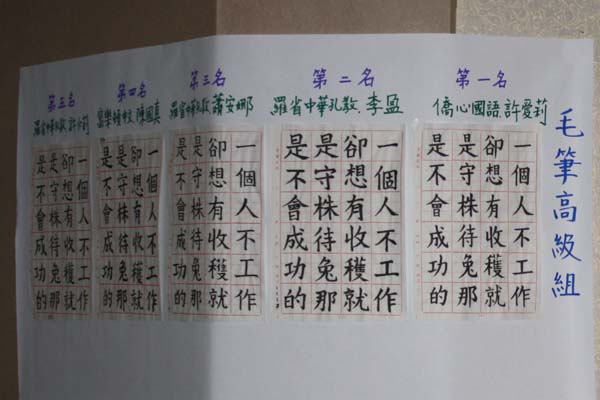 毛筆高級組
第一名
僑心國語.許愛莉
一個人不工作
卻想有收穫就
是守株待兔那
是不會成功的
第二名
羅省中華孔教.李盈
一個人不工作
卻想有收穫就
是守株待兔那
是不會成功的
第三名
羅省中華孔教 蕭安娜
一個人不工作
卻想有收穫就
是守株待兔那
是不會成功的
第四名
陳國真
一個人不工作
卻想有收穫就
是守株待兔那
是不會成功的
第五名
羅省中華孔教
一個人不工作
卻想有收穫就
是守株待兔那
是不會成功的